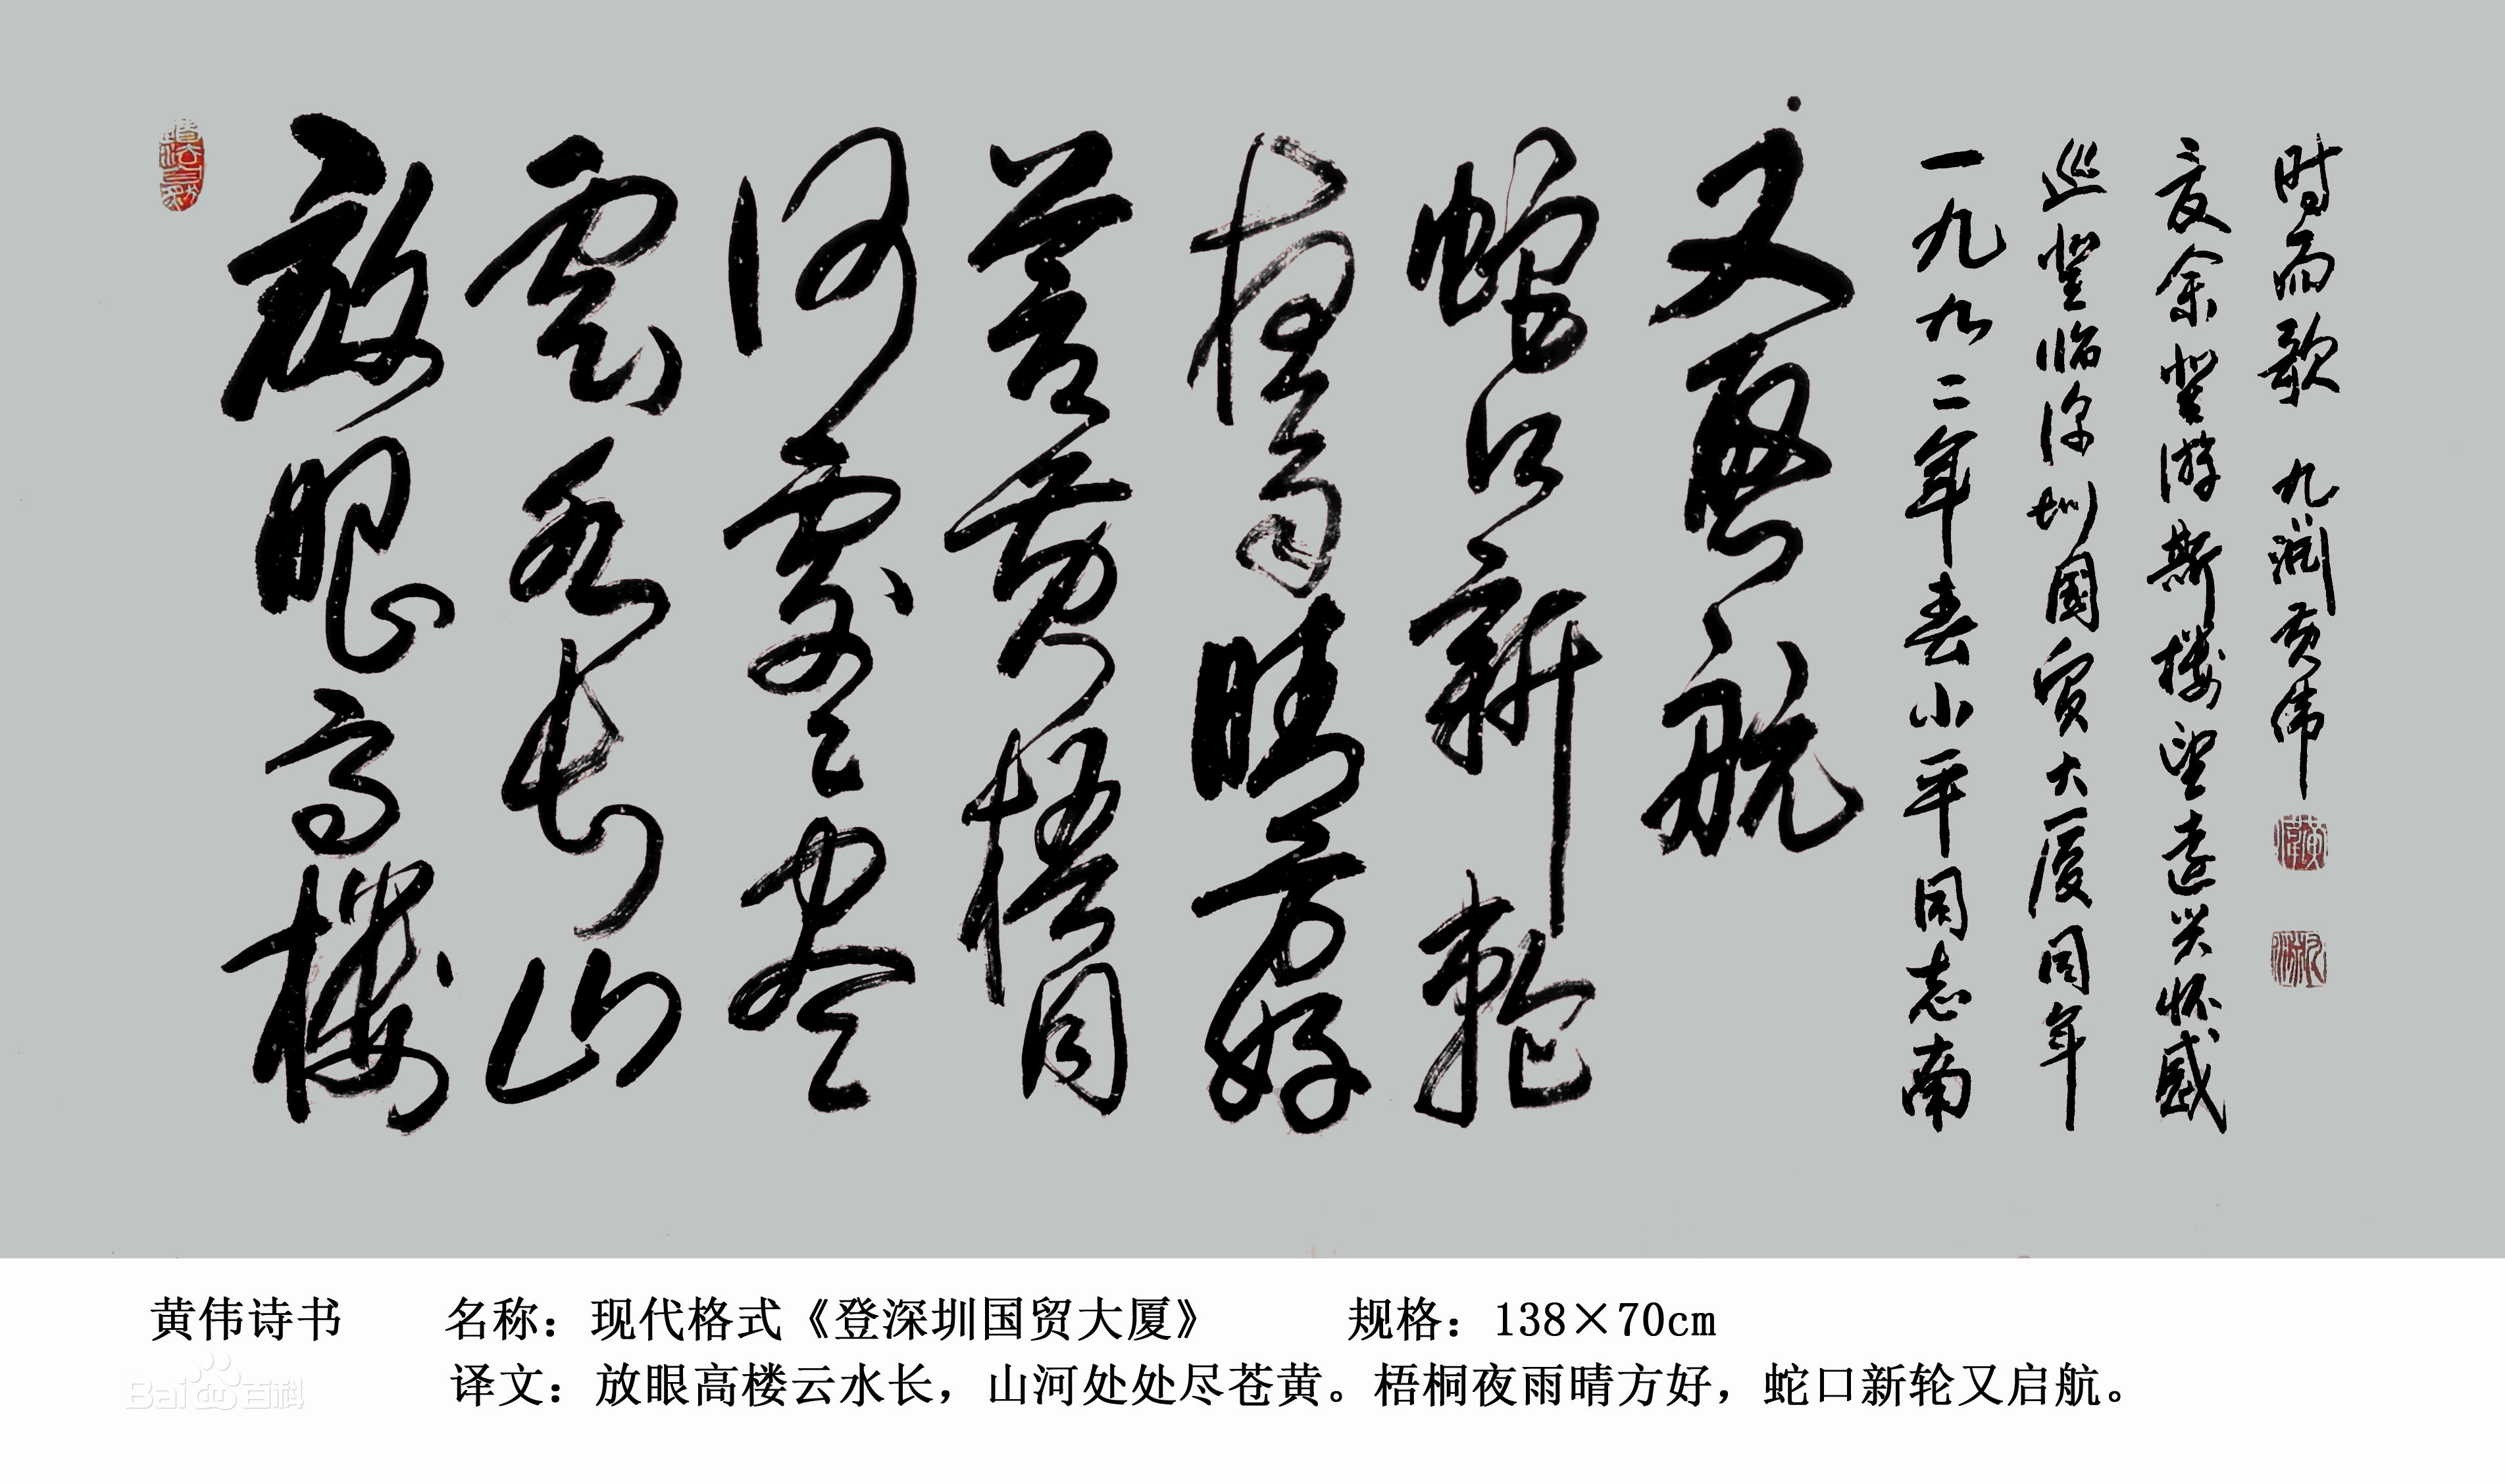 放眼高楼
雲水长山
河處處尽
苍黄梧桐
夜雨晴方好
蛇口新轮
又启航
一九九二年春小平同志南
巡登临深圳国贸大厦同年
夏余登游斯楼望远兴怀感
时而歌 九 黄伟
黄伟诗书 名称：现代格式《登深圳国贸大厦》 规格：138×70cm
译文：放眼高楼云水长，山河处处尽苍黄。梧桐夜雨晴方好，蛇口新轮又启航。
Bai百科